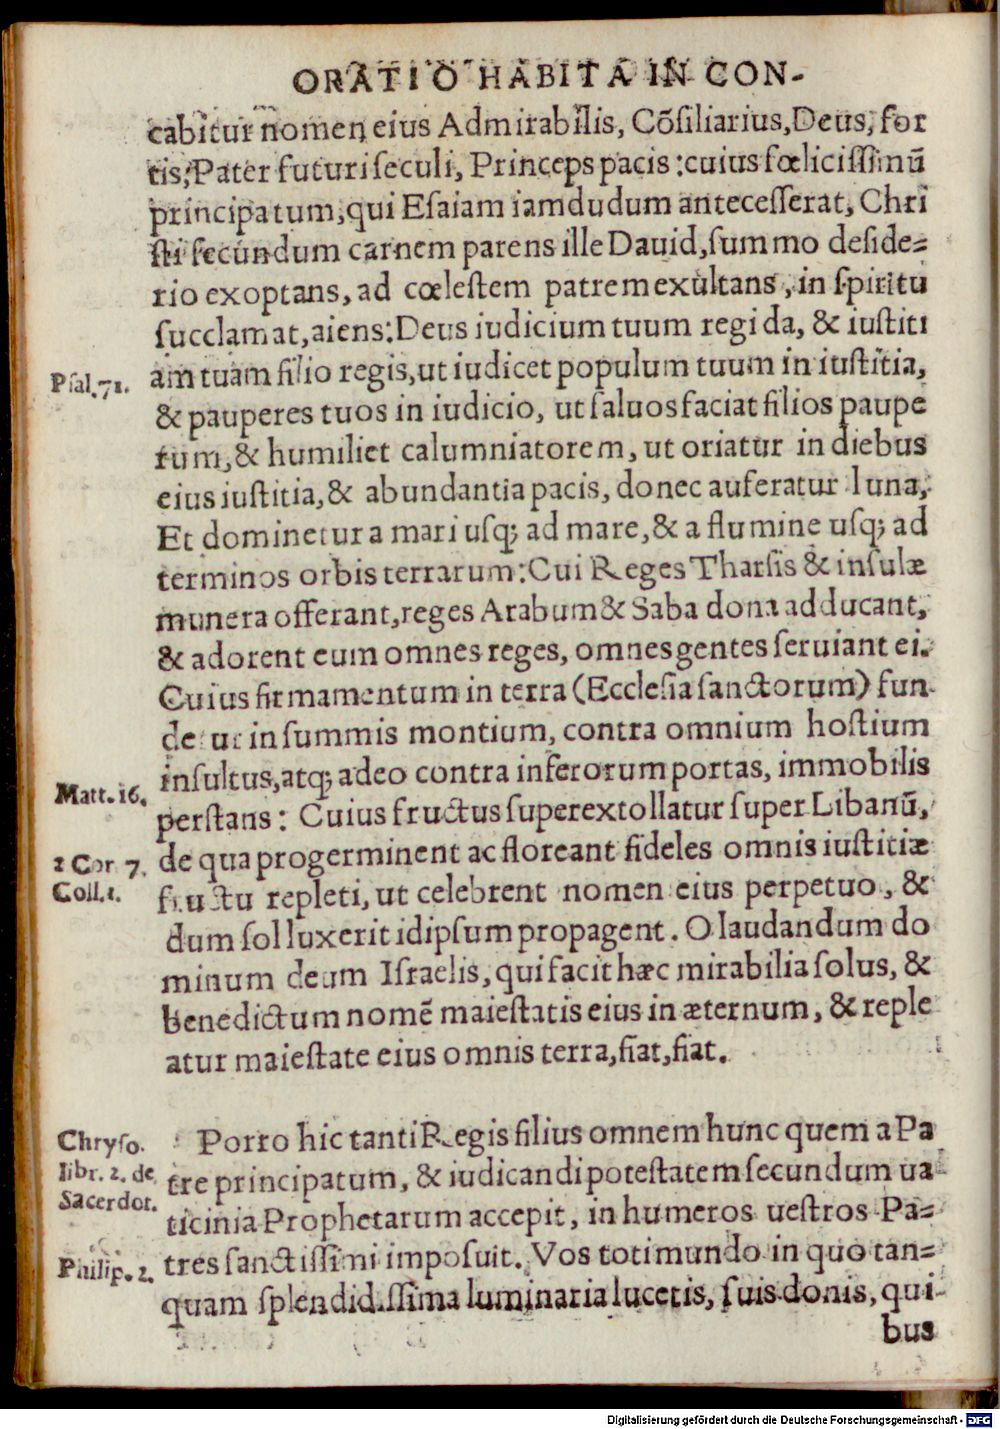 ORATIO HABITA IN CON-
cabitur nomen eius Admirabilis, Cõsiliarius, Deus, for
tis, Pater futuri seculi, Princeps pacis: cuius fœlicissimũ
principatum, qui Esaiam iamdudum antecesserat, Chri
sti secundum carnem parens ille Dauid, summo deside=
rio exoptans, ad cœlestem patrem exultans, in spiritu
succlamat, aiens: Deus iudicium tuum regi da, & iustiti
Psal. 71. am tuam filio regis, ut iudicet populum tuum in iustitia,
& pauperes tuos in iudicio, ut saluos faciat filios paupe
rum, & humiliet calumniatorem, ut oriatur in diebus
eius iustitia, & abundantia pacis, donec auferatur luna,
Et dominetur a mari usq; ad mare, & a flumine usq; ad
terminos orbis terrarum: Cui Reges Tharsis & insulæ
munera offerant, reges Arabum & Saba dona adducant,
& adorent eum omnes reges, omnes gentes seruiant ei.
Cuius firmamentum in terra (Ecclesia sanctorum) fun
detur in summis montium, contra omnium hostium
Matt. 16. insultus, atq; adeo contra inferorum portas, immobilis
perstans: Cuius fructus superextollatur super Libanũ,
2 Cor 7. de qua progerminent ac floreant fideles omnis iustitiæ
Coll. 1. fructu repleti, ut celebrent nomen eius perpetuo, &
dum sol luxerit idipsum propagent. O laudandum do
minum deum Israelis, qui facit hæc mirabilia solus, &
benedictum nomẽ maiestatis eius in æternum, & reple
atur maiestate eius omnis terra, fiat, fiat.
Chryso. Porro hic tanti Regis filius omnem hunc quem a Pa
libr. 2. de tre principatum, & iudicandi potestatem secundum ua
Sacerdot. ticinia Prophetarum accepit, in humeros uestros Pa=
Philip. 2. tres sanctissimi imposuit. Vos toti mundo in quo tan=
quam splendidissima luminaria lucetis, suis donis, qui
bus
Digitalisierung gefördert durch die Deutsche Forschungsgemeinschaft - DFG